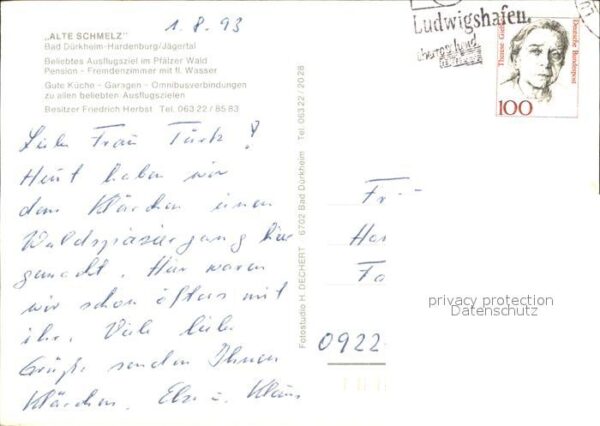 1.8.93
„ALTE SCHMELZ"
Bad Dürkheim-Hardenburg/Jägertal
Beliebtes Ausflugsziel im Pfälzer Wald
Pension - Fremdenzimmer mit fl. Wasser
Gute Küche - Garagen - Omnibusverbindungen
zu allen beliebten Ausflugszielen
Besitzer Friedrich Herbst Tel. 063 22 / 85 83
Liebe Frau Türk!
Heut haben wir
dem Klärchen einen
Waldspaziergang hier
gemacht. Hier waren
wir schon öfters mit
ihr. Viele liebe
Grüße senden Ihnen
Klärchen, Else u. Klaus
Fotostudio H. DECHERT 6702 Bad Dürkheim Tel. 063 22 / 20 28
Ludwigshafen
Deutsche Bundespost
Therese
100
Fr
Ha
Fa
0922
privacy protection
Datenschutz